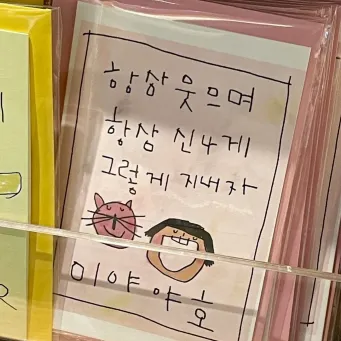 항상 웃으며
항상 신나게
그렇게 지내자
이야야호